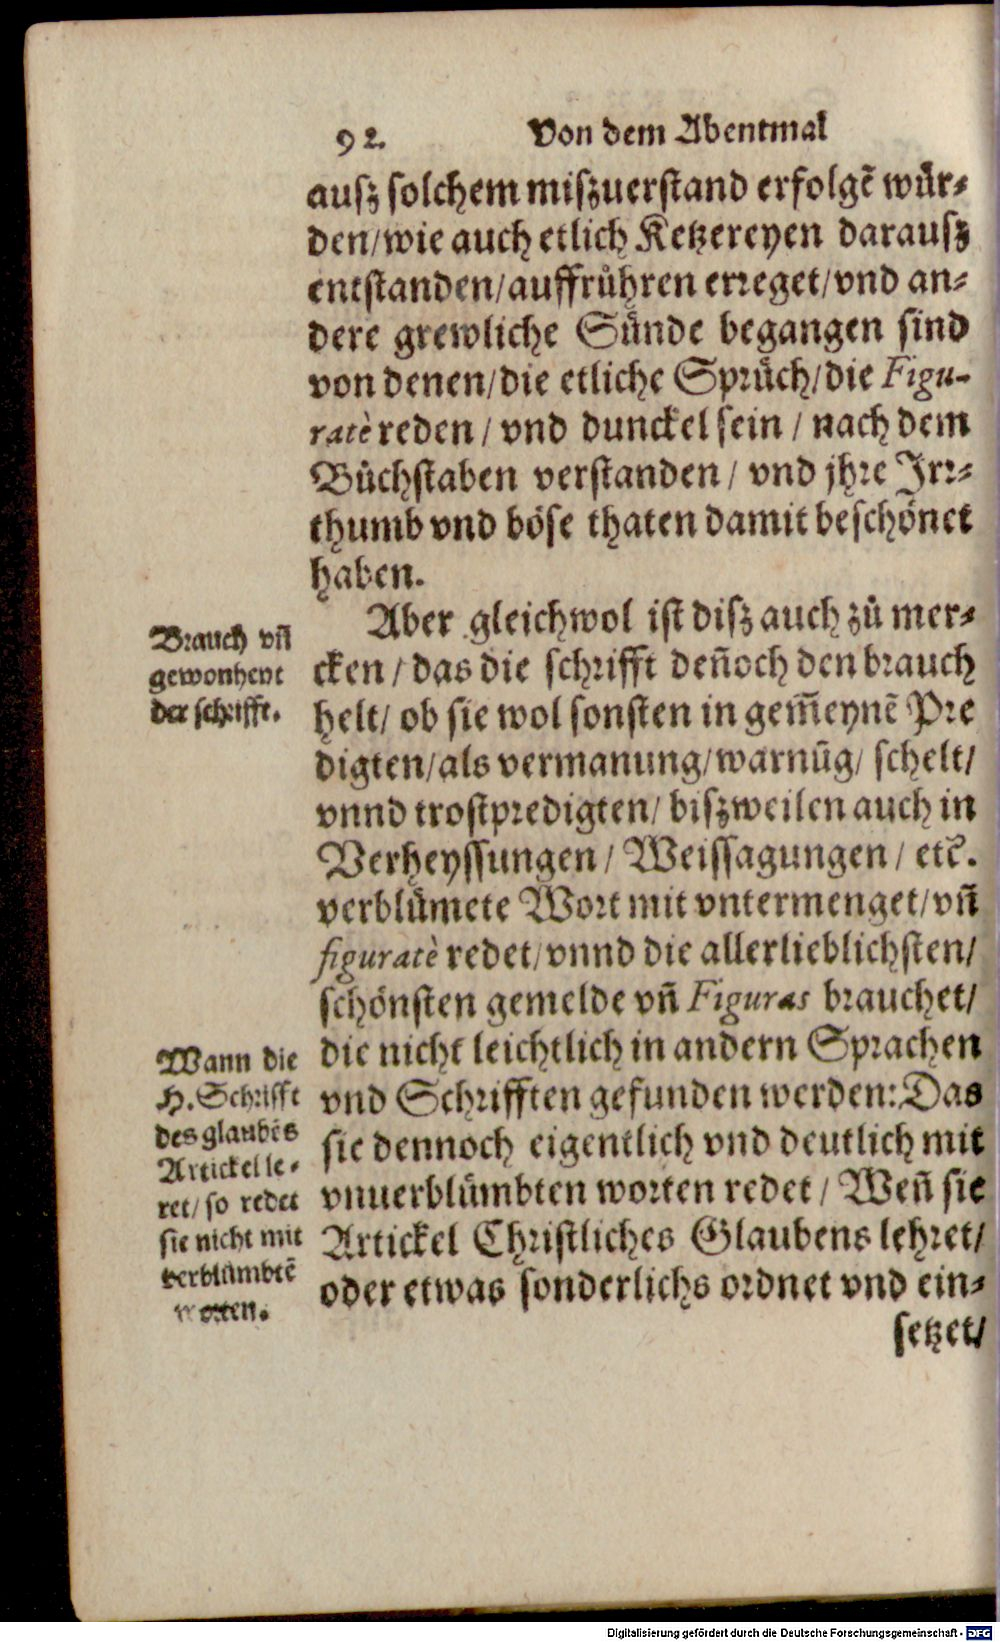 92. Von dem Abentmal
ausz solchem miszuerstand erfolgẽ wür-
den/wie auch etlich Ketzereyen darausz
entstanden/auffrühren erreget/vnd an-
dere grewliche Sünde begangen sind
von denen/die etliche Sprüch/die Figu-
ratè reden / vnd dunckel sein / nach dem
Bůchstaben verstanden / vnd jhre Irr-
thumb vnd böse thaten damit beschönet
haben.
Aber gleichwol ist disz auch zů mer-
cken / das die schrifft deñoch den brauch
helt/ ob sie wol sonsten in gem̃eynẽ Pre
digten/als vermanung/warnũg/ schelt/
vnnd trostpredigten/ biszweilen auch in
Verheyssungen / Weissagungen / etc.
verblümete Wort mit vntermenget/vñ
figuratè redet/vnnd die allerlieblichsten/
schönsten gemelde vñ Figuras brauchet/
die nicht leichtlich in andern Sprachen
vnd Schrifften gefunden werden: Das
sie dennoch eigentlich vnd deutlich mit
vnuerblümbten worten redet / Weñ sie
Artickel Christliches Glaubens lehret/
oder etwas sonderlichs ordnet vnd ein-
setzet/
Brauch vñ
gewonheyt
der schrifft.
Wann die
H. Schrifft
des glaubẽs
Artickel le-
ret/ so redet
sie nicht mit
verblümbtẽ
worten.
Digitalisierung gefördert durch die Deutsche Forschungsgemeinschaft - DFG